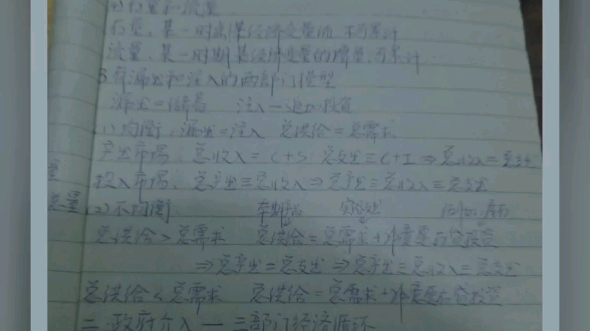 2) 存量和流量
存量：某一时点某经济变量值，不可累计
流量：某一时期某经济变量的增量，可累计
3. 有漏出和注入的两部门模型
漏出=储蓄 注入—
(1) 均衡：漏出=注入 总供给=总需求
产出市场：总收入=C+S 总支出=C+I ⇒ 总收入=总支出
投入市场：总产出=总收入 ⇒ 总产出=总收入=总支出
(2) 不均衡
总供给>总需求 总供给=总需求+非意愿存货投资
⇒ 总产出=总支出 ⇒ 总产出=总收入=总支出
总供给<总需求 总供给=总需求+非意愿存货投资
二、政府介入—三部门经济循环